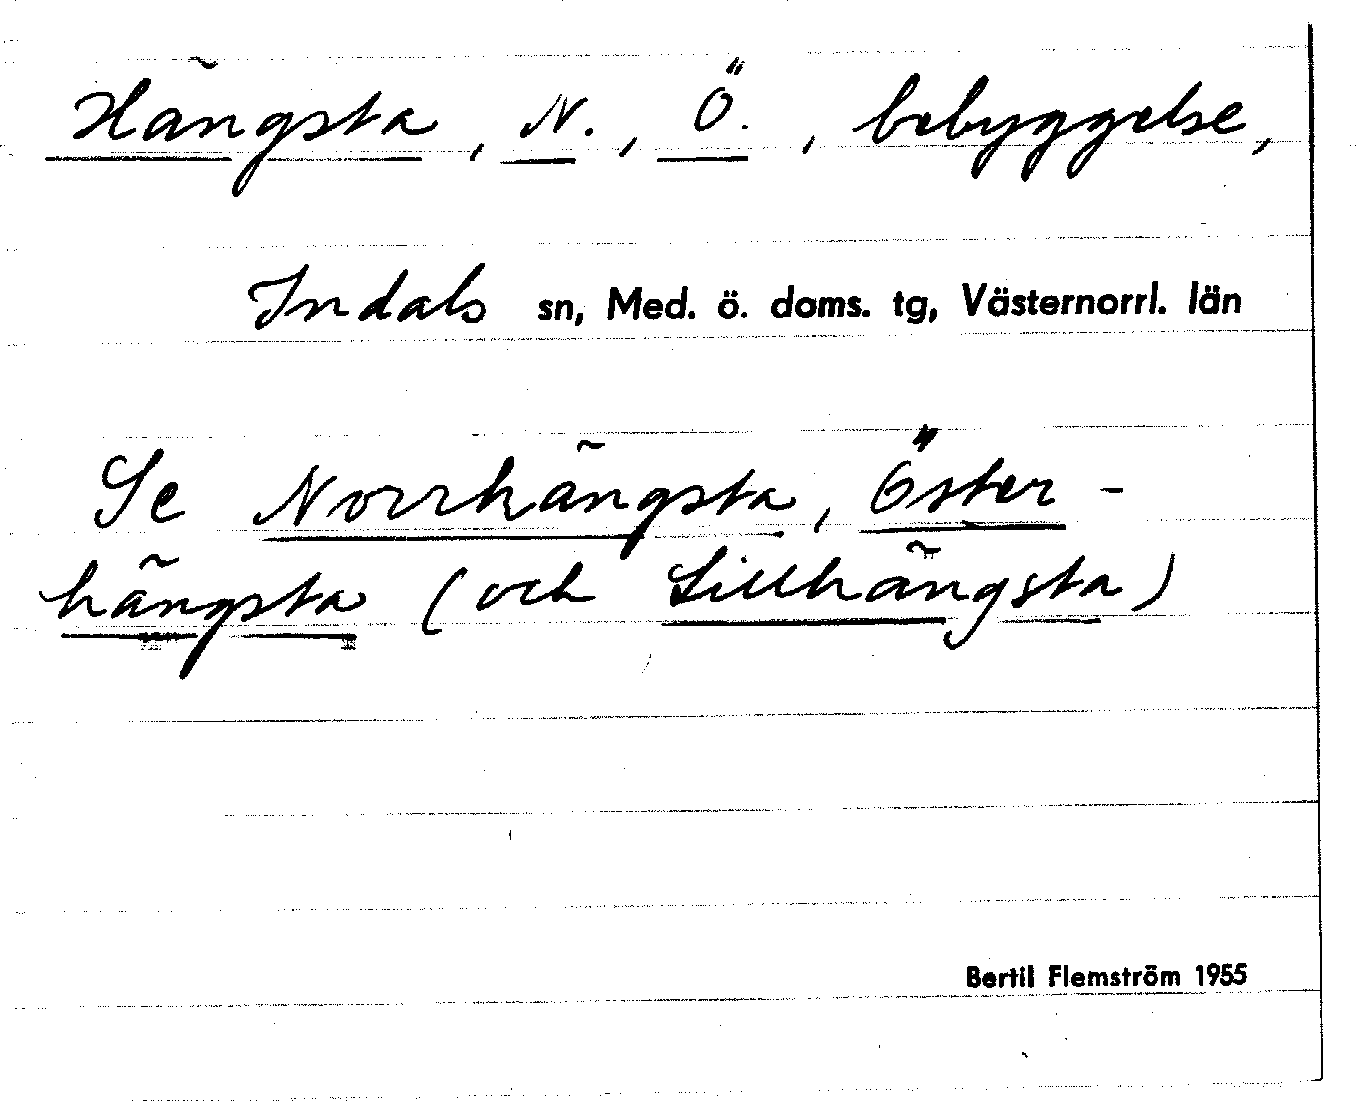 Hängsta, N., Ö., bebyggelse,
Indals sn, Med. ö. doms. tg, Västernorrl. län
Se Norrhängsta, Öster-
hängsta (och Lillhängsta)
Bertil Flemström 1955